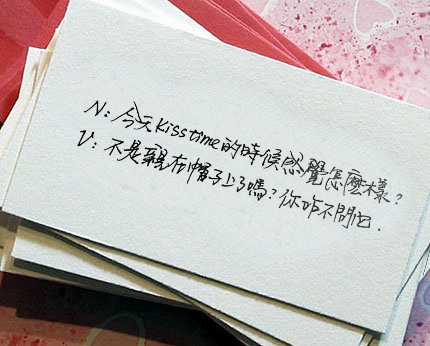 N: 今天kiss time的時候感覺怎麼樣？
V: 不是親在帽子上了嗎？你咋不問它.